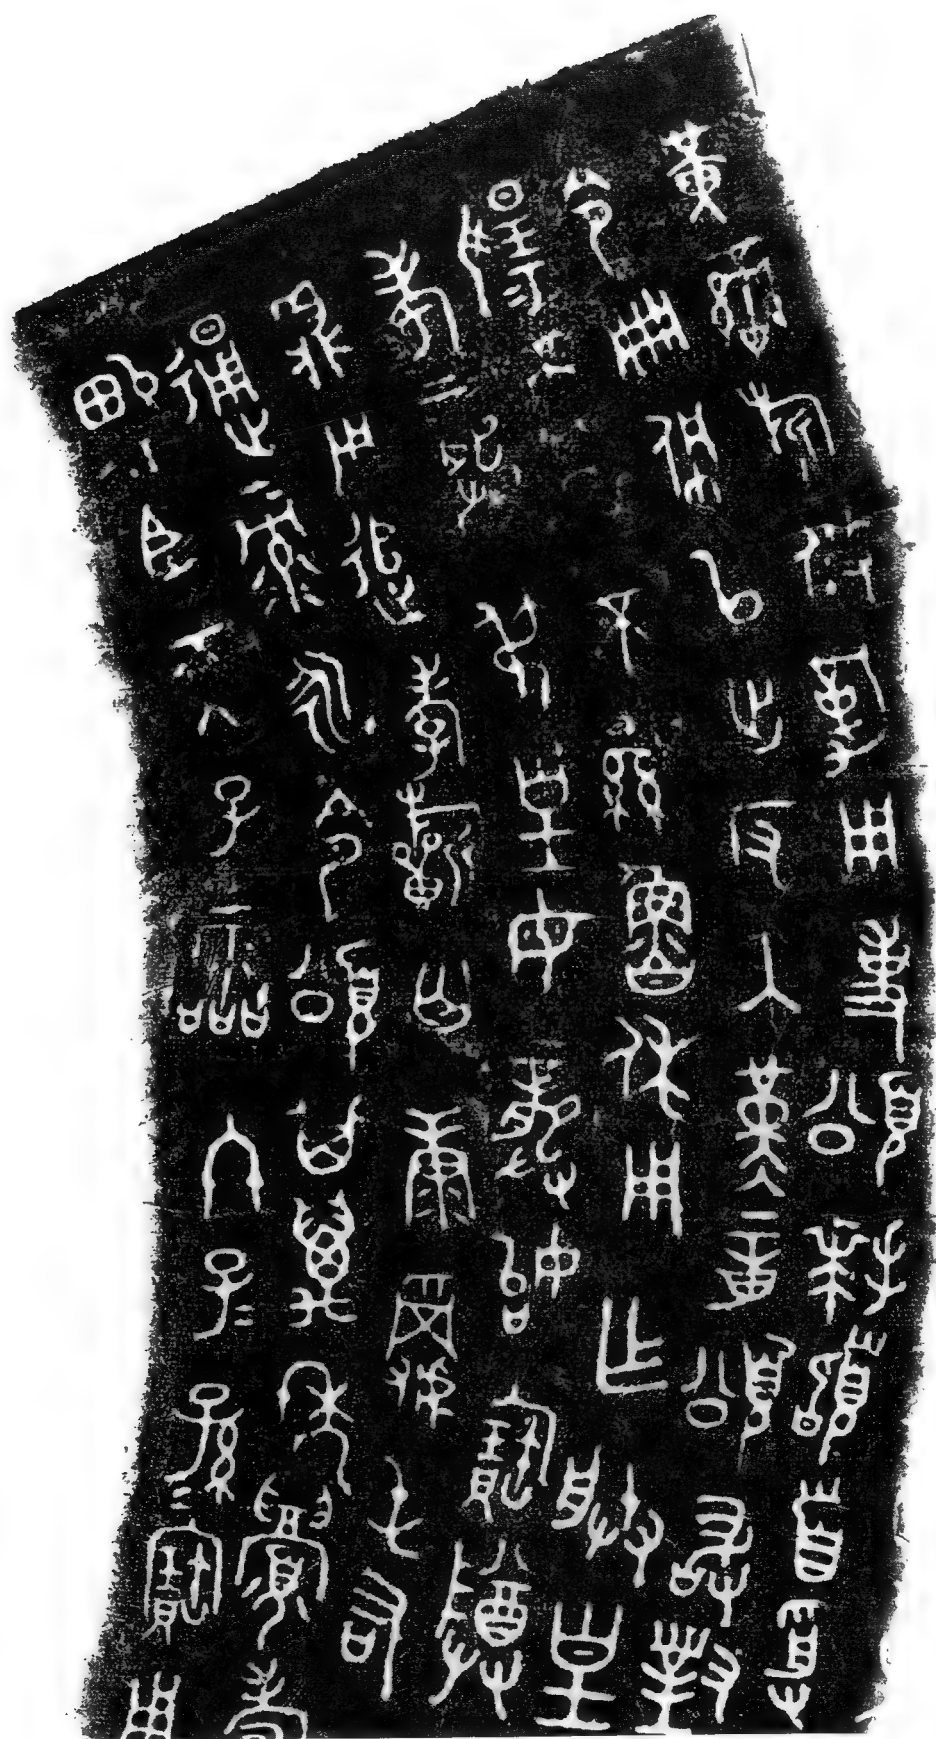 黃䜌旂攸勒用事頌拜䭫首受
令冊佩以出反入堇章頌敢對
揚天子不顯魯休用乍朕皇
考龏弔皇母龏始寶尊
𣪘用追孝祈匄康𩁹屯右
通彔永令頌其萬年眉壽
畯臣天子霝冬子=孫=寶用